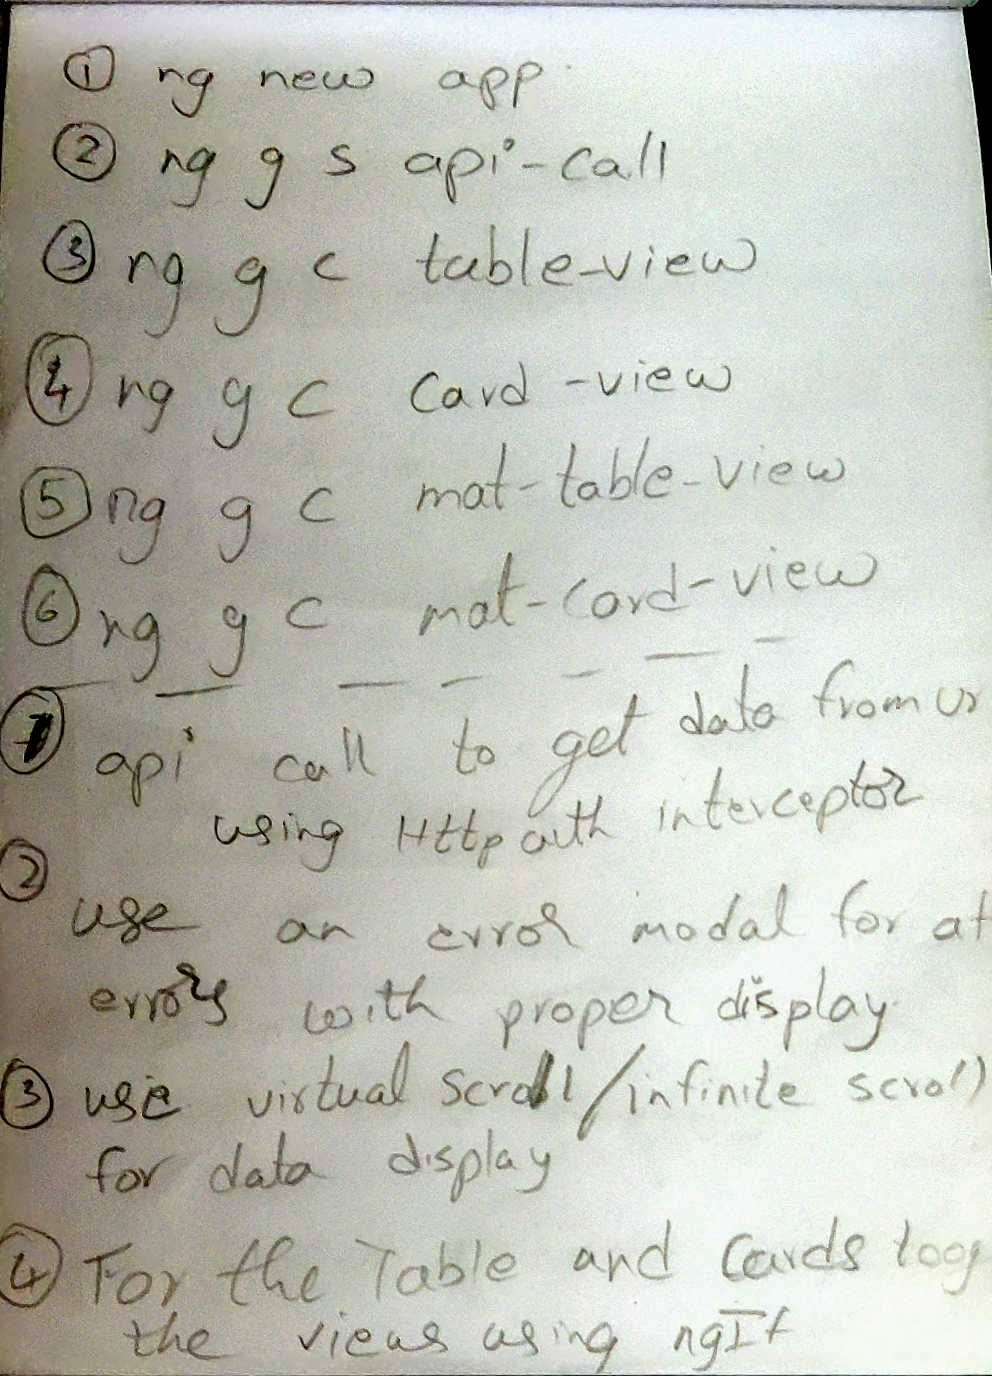 ① ng new app
② ng g s api-call
③ ng g c table-view
④ ng g c card-view
⑤ ng g c mat-table-view
⑥ ng g c mat-card-view
① api call to get data from ur
using Http auth interceptor
② use an error modal for
errors with proper display.
③ use virtual scroll/infinite scroll
for data display
④ For the Table and Cards
the views using ngIf